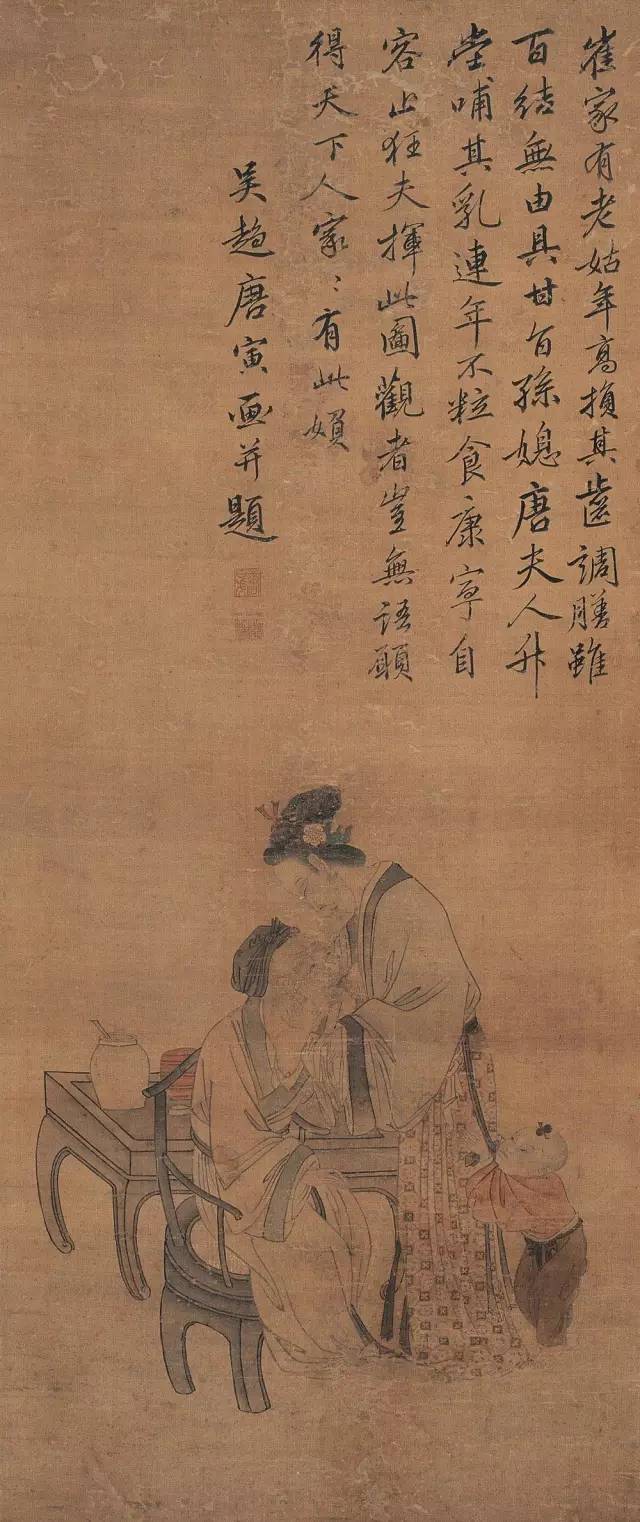 崔家有老姑年高損其齒調膳雖
百結無由具甘旨孫媳唐夫人升
堂哺其乳連年不粒食康寧自
容止狂夫揮此圖觀者豈無語願
得天下人家〻有此娘
吳趨唐寅画并題